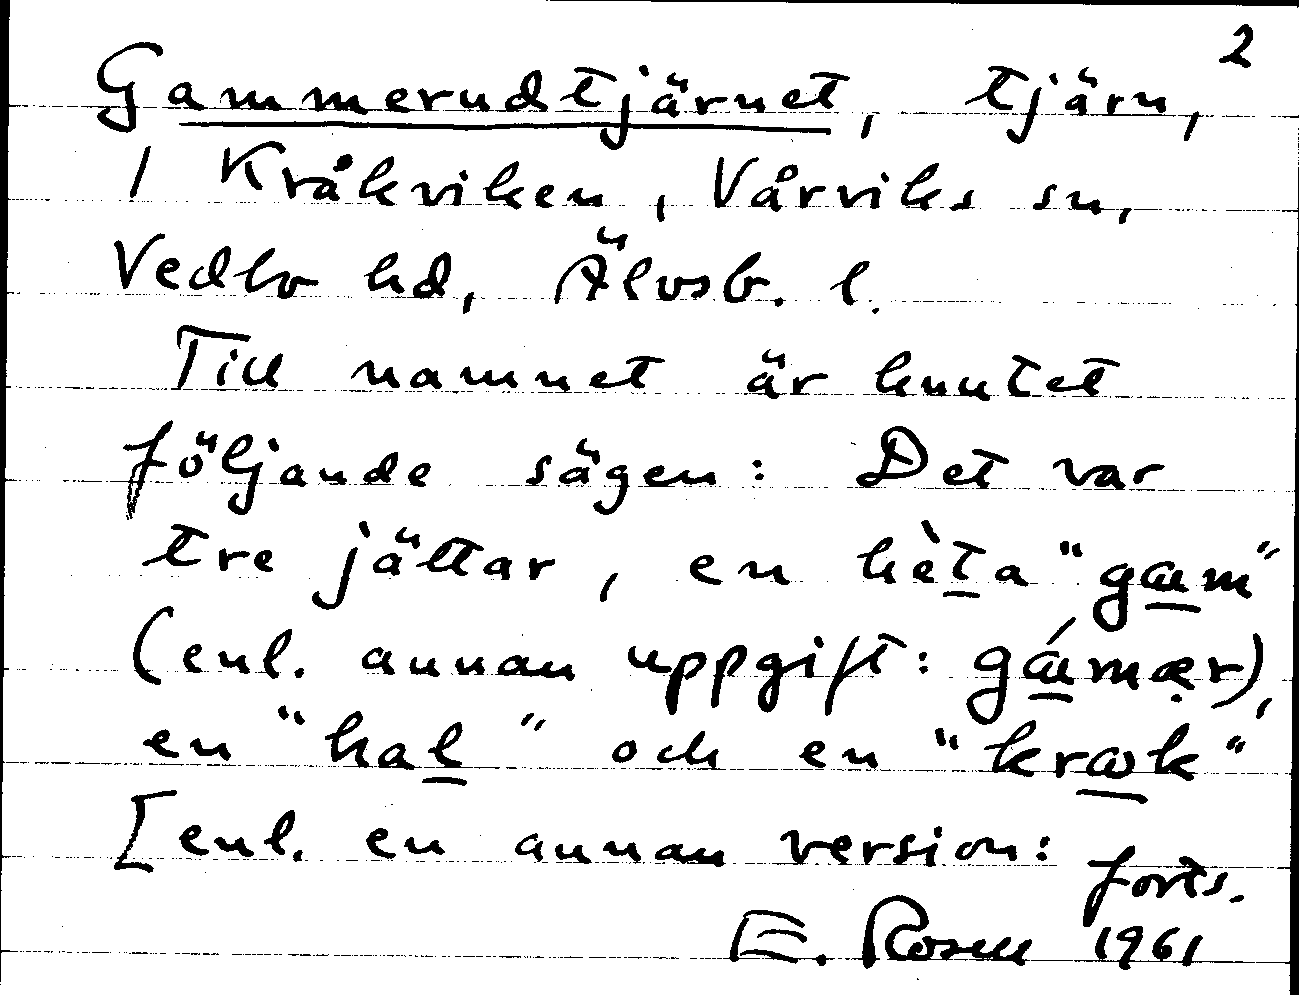 2
Gammerudtjärnet, tjärn,
i Kråkviken, Vårviks sn,
Vedbo hd, Älvsb. l.
Till namnet är knutet
följande sägen: Det var
tre jättar, en hèta "gam"
(enl. annan uppgift: gámær),
en "hal" och en "
[enl. en annan version:
forts.
E. Rosell 1961